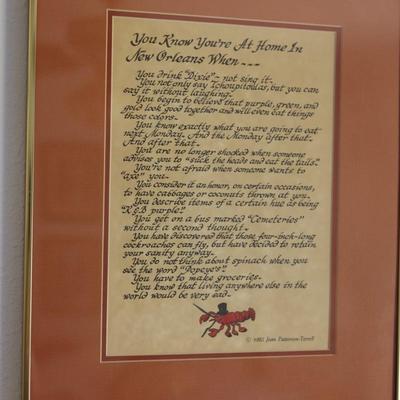 You Know You're At Home In
New Orleans When---
You drink "Dixie"- not sing it-
You not only say Tchoupitoulas, but you can
say it without laughing-
You begin to believe that purple, green, and
gold look good together and will even eat things
those colors-
You know exactly what you are going to eat
next Monday. And the Monday after that-
And after that-
You are no longer shocked when someone
advises you to "suck the heads and eat the tails"-
You're not afraid when someone wants to
"axe" you-
You consider it an honor, on certain occasions,
to have cabbages or coconuts thrown at you-
You describe items of a certain hue as being
"K&B purple"-
You get on a bus marked "Cemeteries"
without a second thought-
You have discovered that those four-inch-long
cockroaches can fly, but have decided to retain
your sanity anyway-
You do not think about spinach when you
see the word "Popeye's"-
You have to make groceries-
You know that living anywhere else in the
world would be very sad-
© 1985 Joan Patterson-Terrell